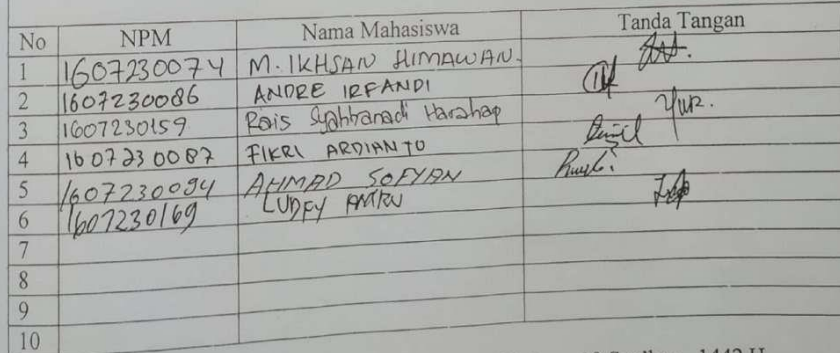 No NPM Nama Mahasiswa Tanda Tangan
1 1607230074 M. IKHSAN HIMAWAN.
2 1607230086 ANDRE IRFANDI
3 1607230159 Rais Syahbanadi Harahap
4 1607230087 FIKRI ARDIANTO
5 1607230094 AHMAD SOFYAN
6 1607230169 LUDFY
7
8
9
10
1442 H